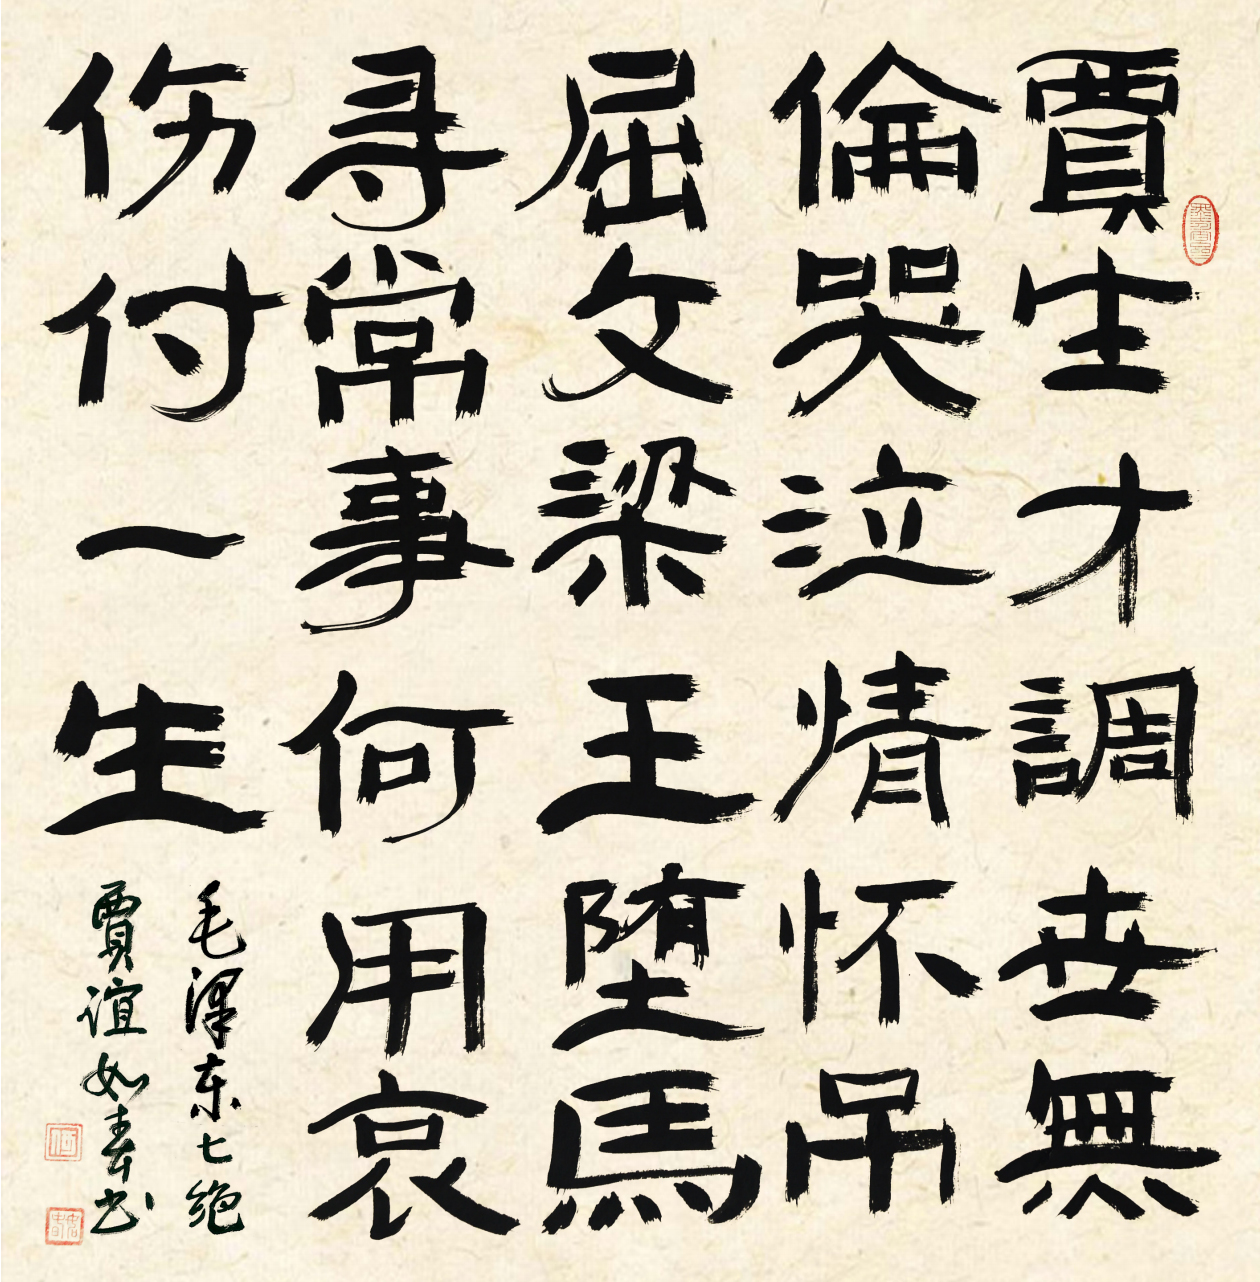 賈生才調世無
倫哭泣情怀吊
屈文梁王堕馬
寻常事何用哀
伤付一生
毛澤东七絶
賈谊如春书